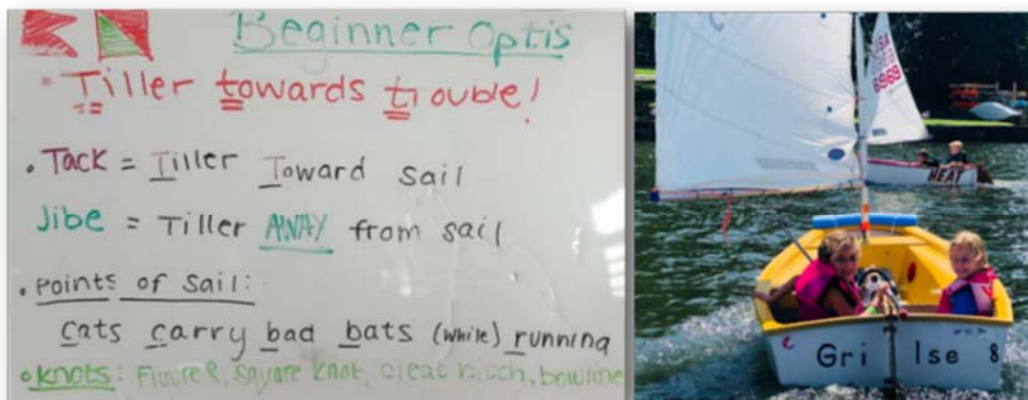 Beginner Optis
• Tiller towards trouble!
• Tack = Tiller Toward sail
Jibe = Tiller AWAY from sail
• Points of Sail:
Cats carry bad bats (while) running
• Knots: Figure 8, Square knot, cleat hitch, bowline
USA
6969
HEAT
Gri lse 8